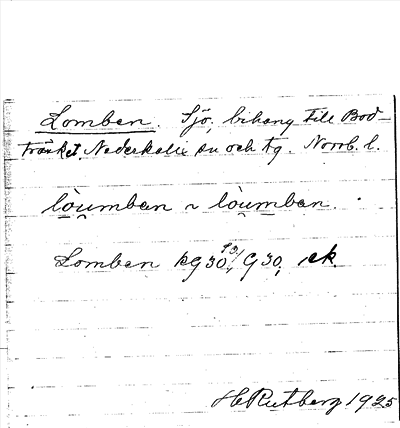 Lomben. Sjö, bihang till Bod-
träsket, Nederkalix sn och tg. Norrb. l.
lòumben ~ lòumben.
Lomben kg 30, 13/ G 30, ek
H Rutberg 1925